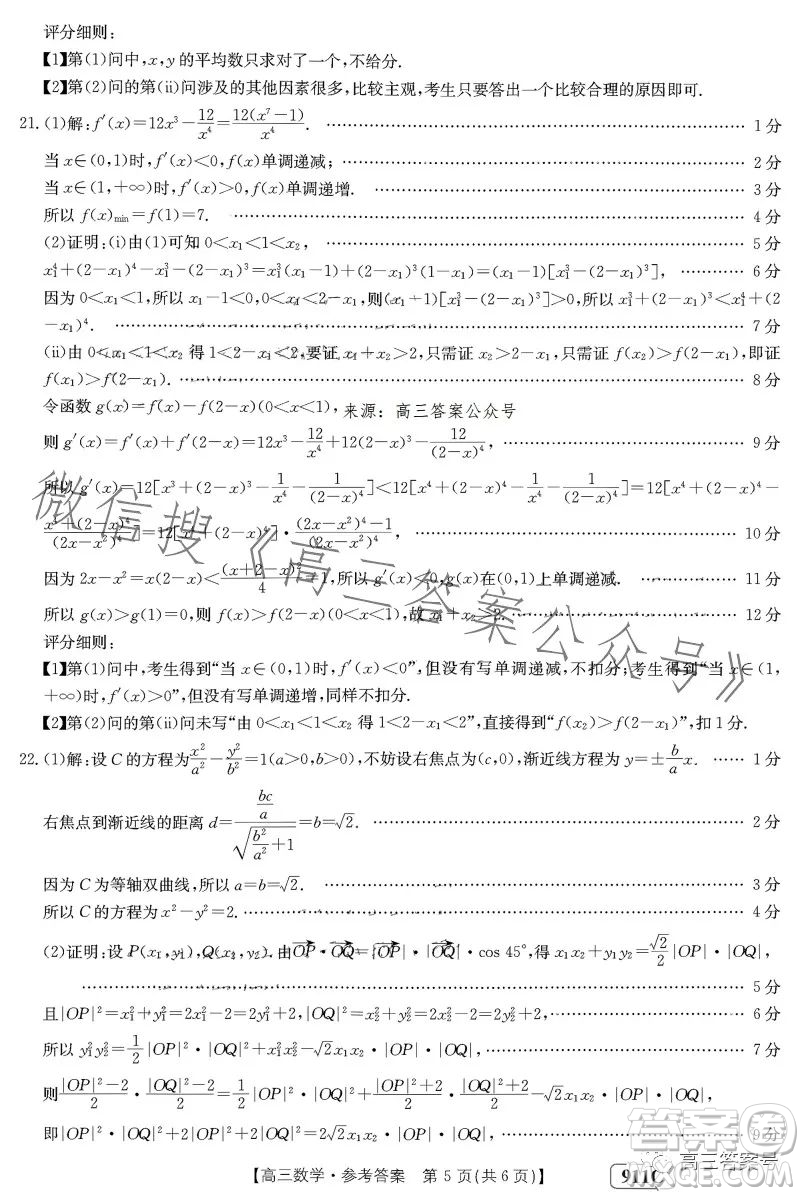 评分细则:
【1】第(1)问中,x,y的平均数只求对了一个,不给分.
【2】第(2)问的第(ⅱ)问涉及的其他因素很多,比较主观,考生只要答出一个比较合理的原因即可.
21.(1)解:f′(x)=12x³-12/x⁴=12(x⁷-1)/x⁴. …… 1分
当x∈(0,1)时,f′(x)<0,f(x)单调递减; …… 2分
当x∈(1,+∞)时,f′(x)>0,f(x)单调递增. …… 3分
所以f(x)min=f(1)=7. …… 4分
(2)证明:(ⅰ)由(1)可知0<x₁<1<x₂, …… 5分
x₁⁴+(2-x₁)⁴-x₁³-(2-x₁)³=x₁³(x₁-1)+(2-x₁)³(1-x₁)=(x₁-1)[x₁³-(2-x₁)³], …… 6分
因为0<x₁<1,所以x₁-1<0,0<x₁<2-x₁,则(x₁-1)[x₁³-(2-x₁)³]>0,所以x₁³+(2-x₁)³<x₁⁴+(2
-x₁)⁴. …… 7分
(ⅱ)由0<x₁<1<x₂得1<2-x₁<2,要证x₁+x₂>2,只需证x₂>2-x₁,只需证f(x₂)>f(2-x₁),即证
f(x₁)>f(2-x₁). …… 8分
令函数g(x)=f(x)-f(2-x)(0<x<1), 来源:高三答案公众号
则g′(x)=f′(x)+f′(2-x)=12x³-12/x⁴+12(2-x)³-12/(2-x)⁴, …… 9分
所以g′(x)=12[x³+(2-x)³-1/x⁴-1/(2-x)⁴]<12[x⁴+(2-x)⁴-1/x⁴-1/(2-x)⁴]=12[x⁴+(2-x)⁴-
(x⁴+(2-x)⁴)/(2x-x²)⁴]=12[x⁴+(2-x)⁴]·((2x-x²)⁴-1)/(2x-x²)⁴, …… 10分
因为2x-x²=x(2-x)<(x+2-x)²/4=1,所以g′(x)<0,g(x)在(0,1)上单调递减. …… 11分
所以g(x)>g(1)=0,则f(x)>f(2-x)(0<x<1),故x₁+x₂>2. …… 12分
评分细则:
【1】第(1)问中,考生得到“当x∈(0,1)时,f′(x)<0”,但没有写单调递减,不扣分;考生得到“当x∈(1,
+∞)时,f′(x)>0”,但没有写单调递增,同样不扣分.
【2】第(2)问的第(ⅱ)问未写“由0<x₁<1<x₂得1<2-x₁<2”,直接得到“f(x₁)>f(2-x₁)”,扣1分.
22.(1)解:设C的方程为x²/a²-y²/b²=1(a>0,b>0),不妨设右焦点为(c,0),渐近线方程为y=±(b/a)x. …… 1分
右焦点到渐近线的距离d=(bc/a)/√(b²/a²+1)=b=√2. …… 2分
因为C为等轴双曲线,所以a=b=√2. …… 3分
所以C的方程为x²-y²=2. …… 4分
(2)证明:设P(x₁,y₁),Q(x₂,y₂).由OP→·OQ→=|OP→|·|OQ→|·cos 45°,得x₁x₂+y₁y₂=(√2/2)|OP|·|OQ|,
…… 5分
且|OP|²=x₁²+y₁²=2x₁²-2=2y₁²+2,|OQ|²=x₂²+y₂²=2x₂²-2=2y₂²+2, …… 6分
所以y₁²y₂²=(1/2)|OP|²·|OQ|²+x₁²x₂²-√2x₁x₂·|OP|·|OQ|, …… 7分
则(|OP|²-2)/2·(|OQ|²-2)/2=(1/2)|OP|²·|OQ|²+(|OP|²+2)/2·(|OQ|²+2)/2-√2x₁x₂·|OP|·|OQ|,
即|OP|²·|OQ|²+2|OP|²+2|OQ|²=2√2x₁x₂·|OP|·|OQ|, …… 9分
【高三数学·参考答案 第5页(共6页)】
911C
微信搜《高三答案公众号》
答案圈
高三答案号